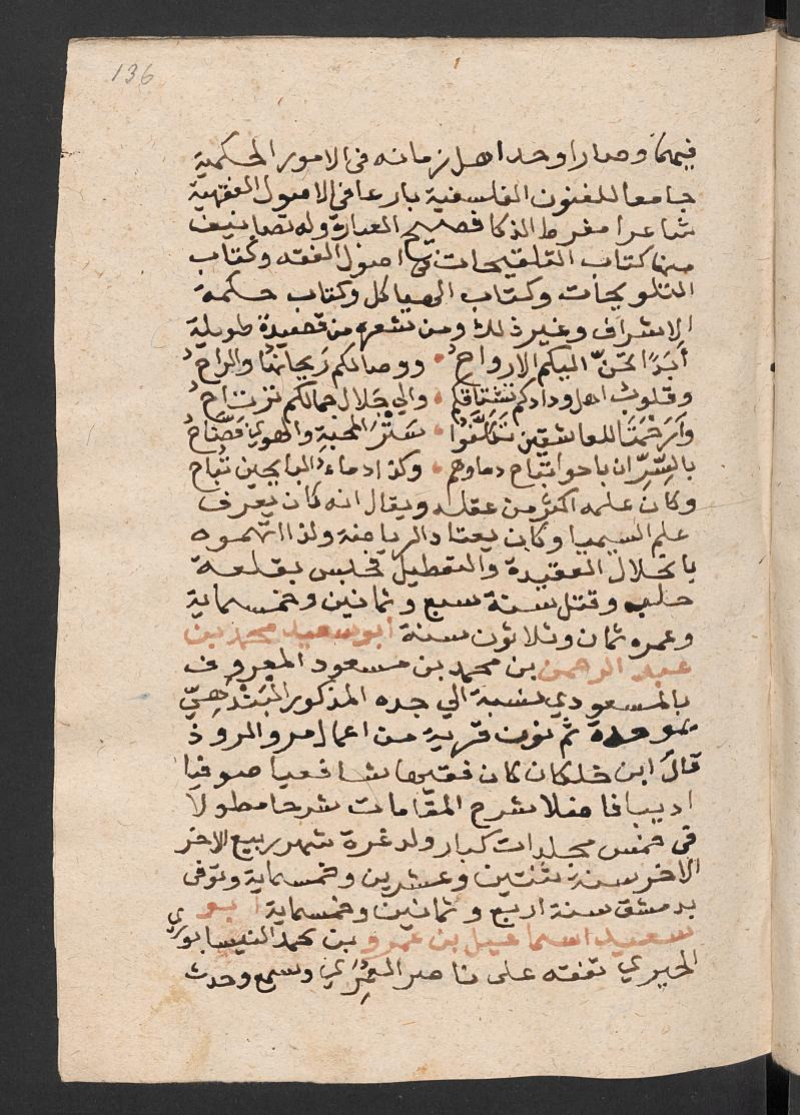 136
فيهما وصار اوحد اهل زمانه في الامور الحكمية
جامعا للفنون الفلسفية بارعا في الاصول الفقهية
شاعرا مفرط الذكا فصيح العبارة وله تصانيف
منها كتاب التلقيحات في اصول الفقه وكتاب
التلويحات وكتاب الهياكل وكتاب حكمة
الاشراف وغير ذلك ومن شعره من قصيدة طويلة
أَبَدًا تَحِنّ اليكم الارواحُ • ووصالكم رَيحانها والراحُ
وقلوب اهل ودادكم تشتاقكم • والي جَلال جمالكم ترتاحُ
وَارَحْمَتَا للعاشقين تَكَلَّفُوا • سَتْرَ المحبة والهوي فَضّاحُ
بالسِّرِّ ان باحوا تباح دماوهم • وكذا دماءُ البايحين تُباح
وكان علمه اكثر من عقله ويقال انه كان يعرف
علم السيميا وكان يعتاد الرياضة ولذا اتهموه
بانحلال العقيدة والتعطيل فحبس بقلعة
حلب وقتل سنة سبع وثمانين وخمسماية
وعمره ثمان وثلاثون سنة أبو سعيد محمد بن
عبد الرحمن بن محمد بن مسعود المعروف
بالمسعودي نسبة الي جده المذكور البَنْدَهِيّ
بموحدة ثم نون قرية من اعمال مرو المروذ
قال ابن خلكان كان فقيها شافعيا صوفيا
اديبا فاضلا شرح المقامات شرحا مطولا
في خمس مجلدات كبار ولد غرة شهر ربيع الاخر
الاخر سنة ثنتين وعشرين وخمسماية وتوفي
بدمشق سنة اربع وثمانين وخمسماية أبو
سعيد اسماعيل بن عمرو بن محمد النيسابوري
الحيري تفقه على ناصر العُمَري وسمع وحدث